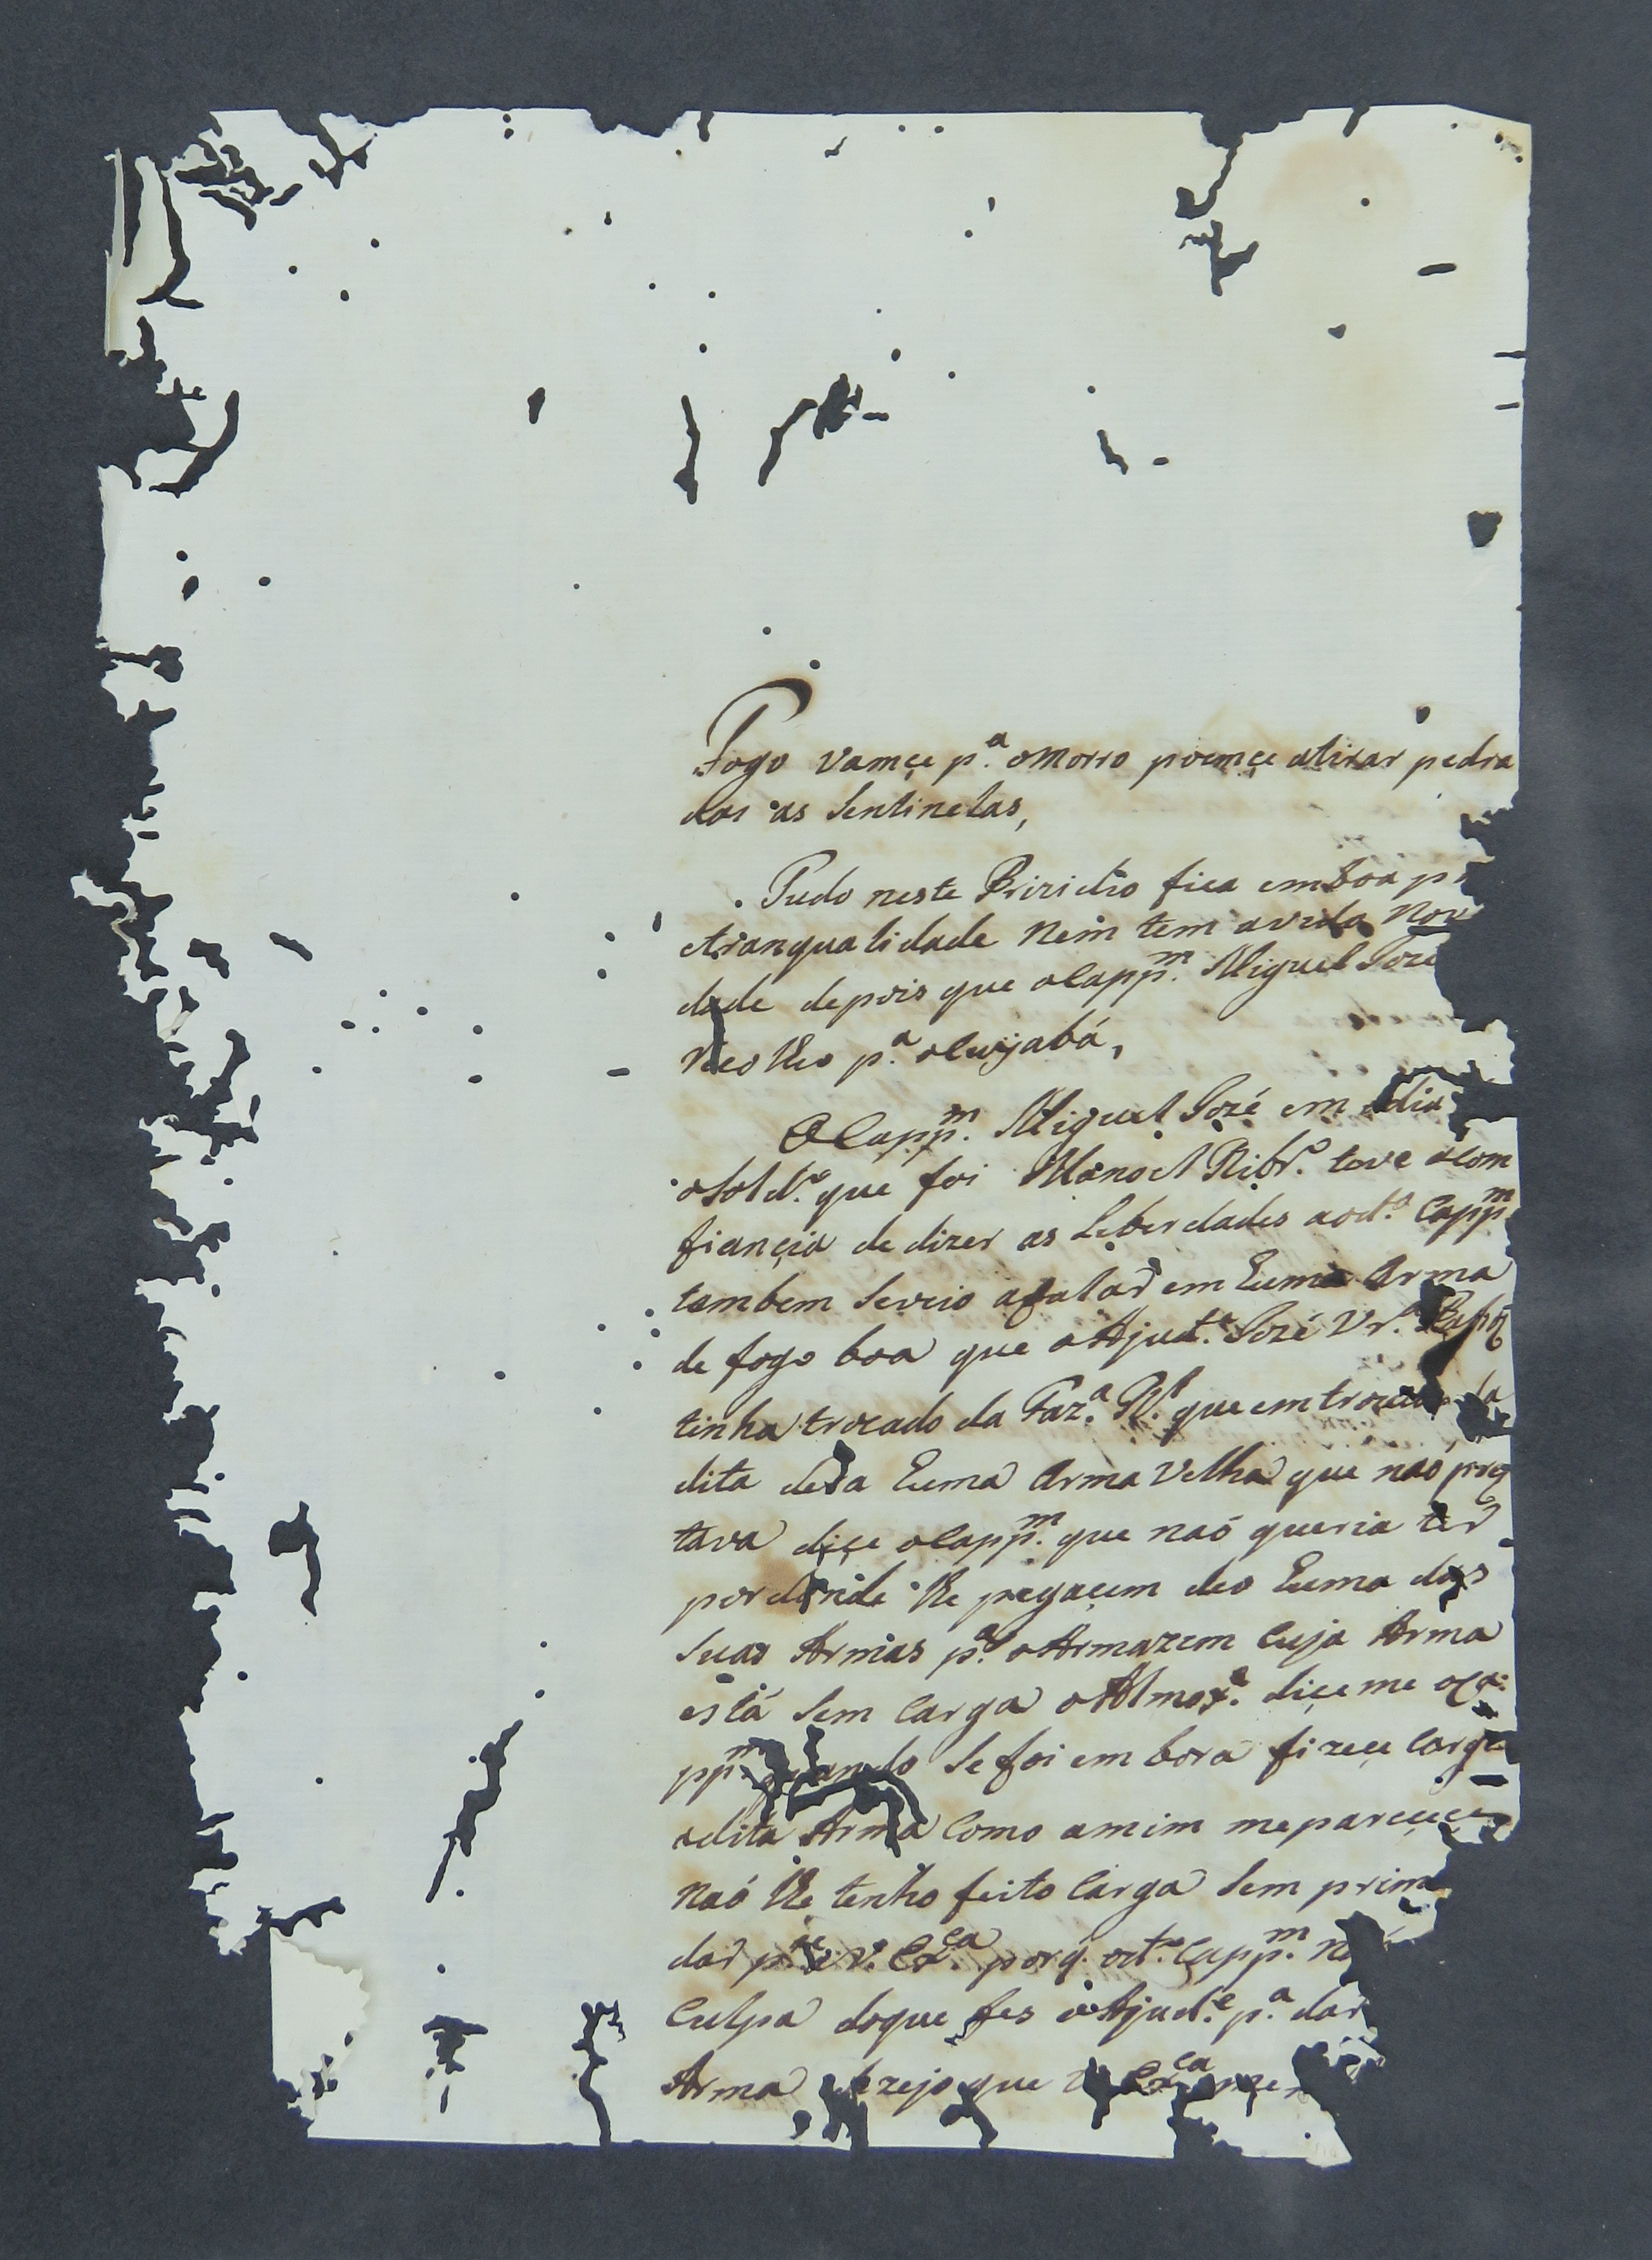 Fogo vamçe p.ª o morro poemçe atirar pedra
das as Sentinelas,
Tudo neste Prizidio fica em boa p
etranqualidade Nem tem avido Nov
dade depois que oCapp.m Miguel Joze
Recolheo p.ª oCuyabá,
OCapp.m Miguel Jozé em dia
oSold.o que foi Manoel Rib.ro teve acom
fiançia de dizer as Leberdades aod.o Capp.m
tambem Seveio afalar em huma Arma
de fogo boa que oAjud.e Jozé Vr.ª
tinha trocado da Faz.ª R.l que em troca da
dita dera huma Arma Velha que naó
tava diçe oCapp.m que naó queria ter
por donde lhe pegaçem deo huma das
Suas Armas p.ª oArmazem Cuja Arma
está Sem Carga oAlmox.e diçe me oCa
pp.m quando Se foi embora fizeçe Carga
adita Arma Como amim me pareçe
naó lhe tenho feito Carga Sem prim
dar p.te a V. Ex.ca porq. od.o Capp.m N
Culpa doque fes oAjud.e p.ª dar
Arma dezejo que V. Ex.ca me